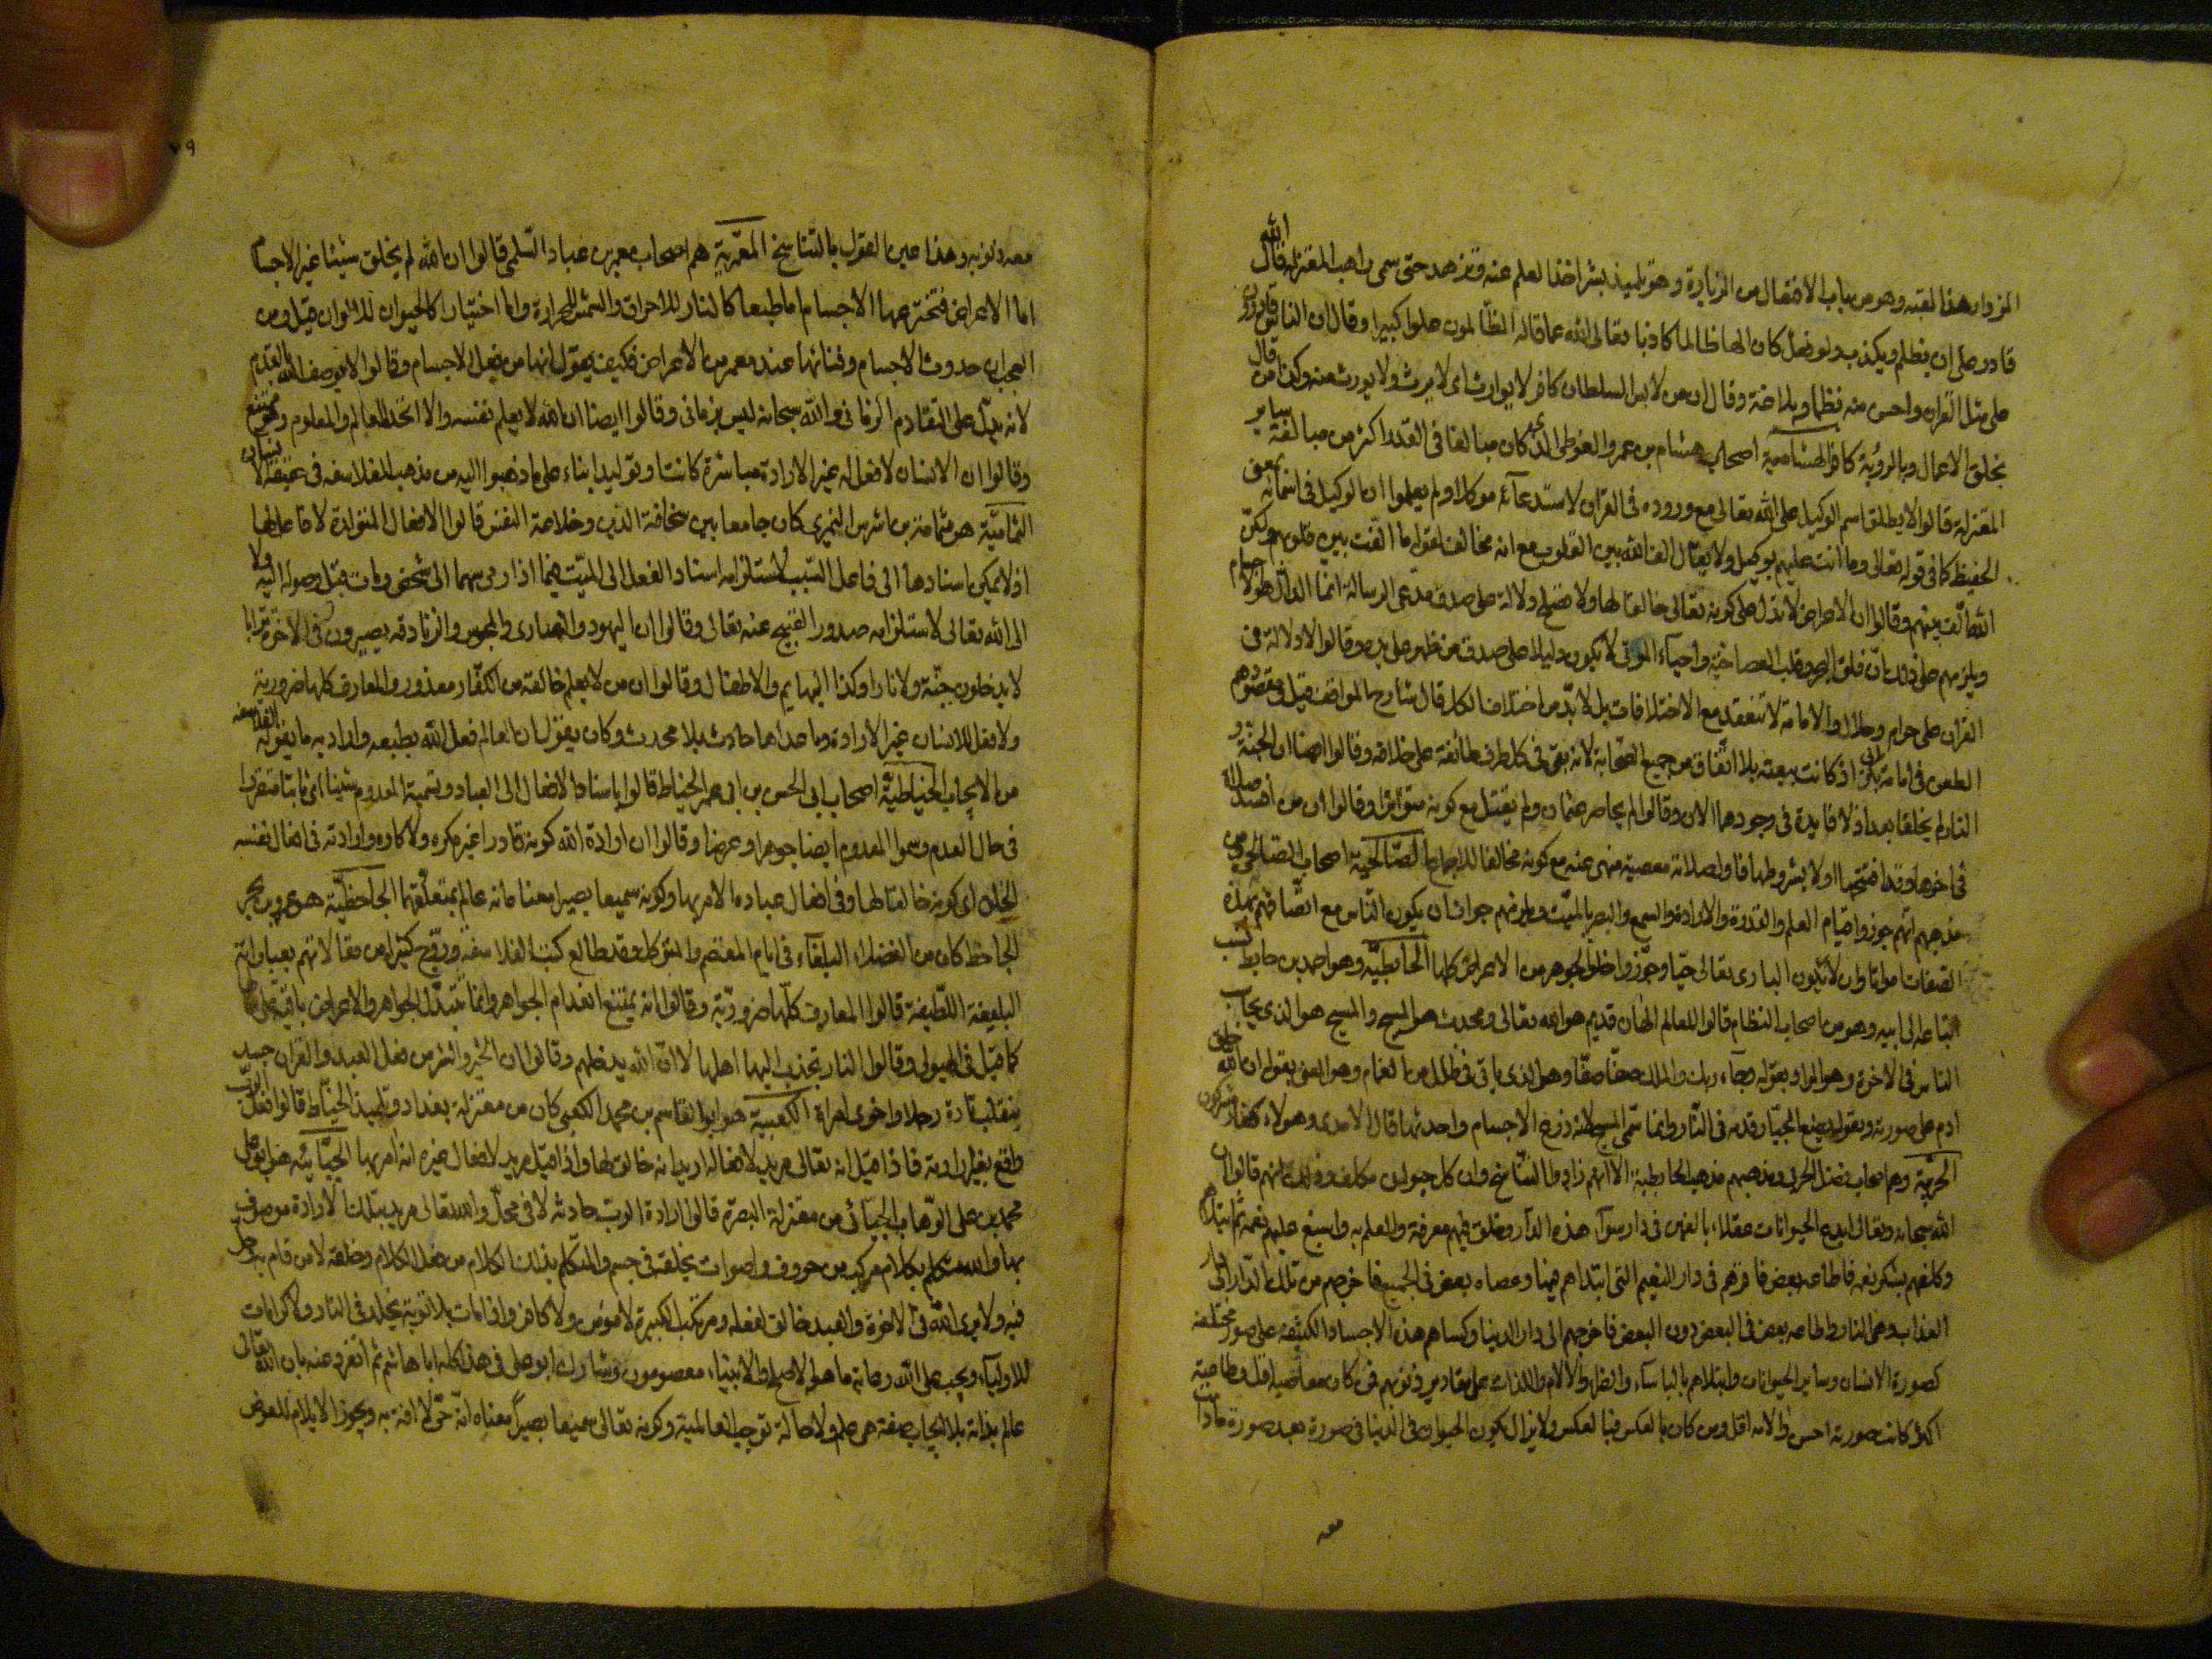 المزدار هذا لقبه وهو من باب الافتعال من الزيارة وهو تلميذ بشر اخذ العلم عنه وتزهد حتى سمى راهب المعتزلة قال الله
قادر على ان يظلم ويكذب ولو فعل كان الها ظالما كاذبا تعالى الله عما قاله الظالمون علوا كبيرا وقال ان الناس قادرون
على مثل القران واحسن منه نظما وبلاغة وقال ان من لابس السلطان كافر لا يوارث اى لا يرث ولا يورث منه وكذا من قال
بخلق الاعمال وبالرؤية كافر الهشامية اصحاب هشام بن عمرو الفوطى الذى كان مبالغا فى القدر اكثر من مبالغة ساير
المعتزلة قالوا لا يطلق اسم الوكيل على الله تعالى مع وروده فى القران لاستدعائه موكلا ولم يعلموا ان الوكيل فى اسمائه بمعنى
الحفيظ كما فى قوله تعالى وما انت عليهم بوكيل ولا يقال الف الله بين القلوب مع انه مخالف لقوله ما الفت بين قلوبهم ولكن
الله الف بينهم وقالوا ان الاعراض لا تدل على كونه تعالى خالقا لها ولا تصلح دلالة على صدق مدعى الرسالة انما الدال هو الاجسام
ويلزمهم على ذلك بان فلق البحر وقلب العصا حية واحياء الموتى لا يكون دليلا على صدق من ظهر على يده وقالوا لا دلالة فى
القران على حرام وحلال والامامة لا تنعقد مع الاختلافات بل لا بد من اختلاف الكل قال شارح المواقف قيل ومقصودهم
الطعن فى امامة بكر اذ كانت بيعته بلا اتفاق من جميع الصحابة لانه بقى فى كل طرف طائفة على خلافه وقالوا ايضا ان الجنة و
النار لم يخلقا بعد اذ لا فايدة فى وجودهما الان وقالوا لم يحاصر عثمان ولم يقتل مع كونه متواترا وقالوا ان من افسد صلاته
فى اخرها وقد افتتحها اولا بشروطها فاول صلاته معصية منهى عنه مع كونه مخالفا للاجماع الصالحية اصحاب الصالحى ومن
مذهبهم انهم جوزوا قيام العلم والقدرة والارادة والسمع والبصر بالميت ويلزمهم جواز ان يكون الناس مع اتصافهم بهذه
الصفات امواتا وان لا يكون البارى تعالى حيا وجوزوا خلو الجوهر من الاعراض كلها الحابطية وهو احمد بن حابط نسب
اتباعه الى ابيه وهو من اصحاب النظام قالوا للعالم الهان قديم هو الله تعالى ومحدث هو المسيح والمسيح هو الذى يحاسب
الناس فى الاخرة وهو المراد بقوله وجاء ربك والملك صفا صفا وهو الذى ياتى فى ظلل من الغمام وهو المعنى بقوله ان الله خلق
ادم على صورته وبقوله يضع الجبار قدمه فى النار وانما سمى المسيح لانه ذرع الاجسام واحدثها قال الامدى وهؤلاء كفار مشركون
الحربية وهم اصحاب فضل الحربى ومذهبهم مذهب الحابطية الا انهم زادوا التناسخ وان كل حيوان مكلف وذلك انهم قالوا ان
الله سبحانه وتعالى ابدع الحيوانات عقلاء بالغين فى دار سواء هذه الدار وخلق فيهم معرفته والعلم به واسبغ عليهم نعمه ثم ابتلاهم
وكلفهم بشكر نعمه فاطاعه بعض فاقرهم فى دار النعيم التى ابتداهم فيها وعصاه بعض فى الجميع فاخرجهم من تلك الدار الى دار
العذاب وهى النار واطاعه بعض فى البعض دون البعض فاخرجهم الى دار الدنيا وكساهم هذه الاجساد الكثيفة على صور مختلفة
كصورة الانسان وساير الحيوانات وابتلاهم بالباساء والضراء والالام واللذات على مقادير ذنوبهم فمن كان معاصيه اقل وطاعته
اكثر كانت صورته احسن والامه اقل ومن كان بالعكس فبالعكس ولا يزال يكون الحيوان فى الدنيا فى صورة بعد صورة ما دامت
معه
٩
معه ذنوبه وهذا عين القول بالتناسخ المعمرية هم اصحاب معمر بن عباد السلمى قالوا ان الله لم يخلق شيئا غير الاجسام
اما الاعراض فتخترعها الاجسام اما طبعا كالنار للاحراق والشمس للحرارة واما اختيارا كالحيوان للالوان قيل ومن
العجب ان حدوث الاجسام وفنائها عند معمر من الاعراض فكيف يقول انها من فعل الاجسام وقالوا لا يوصف الله بالقدم
لانه يدل على التقادم الزمانى والله سبحانه ليس بزمانى وقالوا ايضا ان الله لا يعلم نفسه والا اتحد العالم والمعلوم وهو ممتنع
وقالوا ان الانسان لا فعل له غير الارادة مباشرة كانت او توليدا بناء على ما ذهبوا اليه من مذهب الفلاسفه فى حقيقة الانسان
الثمامية هو ثمامة بن اشرس النميرى كان جامعا بين سخافة الدين وخلاعة النفس قالوا الافعال المتولدة لا فاعل لها
اذ لا يمكن اسنادها الى فاعل السبب لاستلزامه اسناد الفعل الى الميت فيما اذا رمى سهما الى شخص ومات قبل وصوله اليه ولا
الى الله تعالى لاستلزامه صدور القبيح عنه تعالى وقالوا ان اليهود والنصارى والمجوس والزنادقه يصيرون فى الاخرة ترابا
لا يدخلون جنة ولا نارا وكذا البهايم والاطفال وقالوا ان من لا يعلم خالقه من الكفار معذور والمعارف كلها ضرورية
ولا فعل للانسان غير الارادة وما عداها حادث بلا محدث وكان يقول ان العالم فعل الله بطبعه واراد به ما يقوله الفلاسفه
من الايجاب الخياطية اصحاب ابى الحسن بن ابى عمر الخياط قالوا باسناد الافعال الى العباد وتسمية المعدوم شيئا اى ثابتا متقررا
فى حال العدم وسموا المعدوم ايضا جوهرا وعرضا وقالوا ان ارادة الله كونه قادرا غير مكره ولا كاره وارادته فى افعال نفسه
الخلق اى كونه خالقا لها وفى افعال عباده الامر بها وكونه سميعا بصيرا معناه انه عالم بمتعلقهما الجاحظية هو عمرو بن بحر
الجاحظ كان من الفضلاء البلغاء فى ايام المعتصم والمتوكل وقد طالع كتب الفلاسفة وروج كثيرا من مقالاتهم بعباراته
البليغة اللطيفة قالوا المعارف كلها ضرورية وقالوا انه يمتنع انعدام الجواهر وانما تتبدل الجواهر والاعراض باقية
كما قيل فى الهيولى وقالوا النار تجذب اليها اهلها لا ان الله يدخلهم وقالوا ان الخير والشر من فعل العبد والقران جسد
ينقلب تارة رجلا واخرى امراة الكعبية هو ابو القاسم بن محمد الكعبى كان من معتزلة بغداد وتلميذ الخياط قالوا فعل الرب
واقع بغير ارادته فاذا قيل انه تعالى مريد لافعاله اريد انه خالق لها واذا قيل مريد لافعال غيره انه امر بها الجبائيه هو ابو على
محمد بن على الوهاب الجبائى من معتزلة البصرة قالوا ارادة الرب حادثه لا فى محل والله تعالى مريد بتلك الارادة موصوف
بها والله متكلم بكلام مركب من حروف واصوات يخلقه فى جسم والمتكلم بذلك الكلام من فعل الكلام وخلقه لا من قام به وحل
فيه ولا يرى الله فى الاخرة والعبد خالق لفعله ومرتكب الكبيرة لا مومن ولا كافر واذا مات بلا توبة يخلد فى النار ولا كرامات
للاولياء ويجب على الله رعاية ما هو الاصلح والانبياء معصومون وشارك ابو على فى هذا كله ابا هاشم ثم انفرد عنه بان الله تعالى
عالم بذاته بلا ايجاب صفة هى علم ولا حالة توجب العالمية وكونه تعالى سميعا بصيرا معناه انه حى لا افة به ويجوز الايلام للعوض